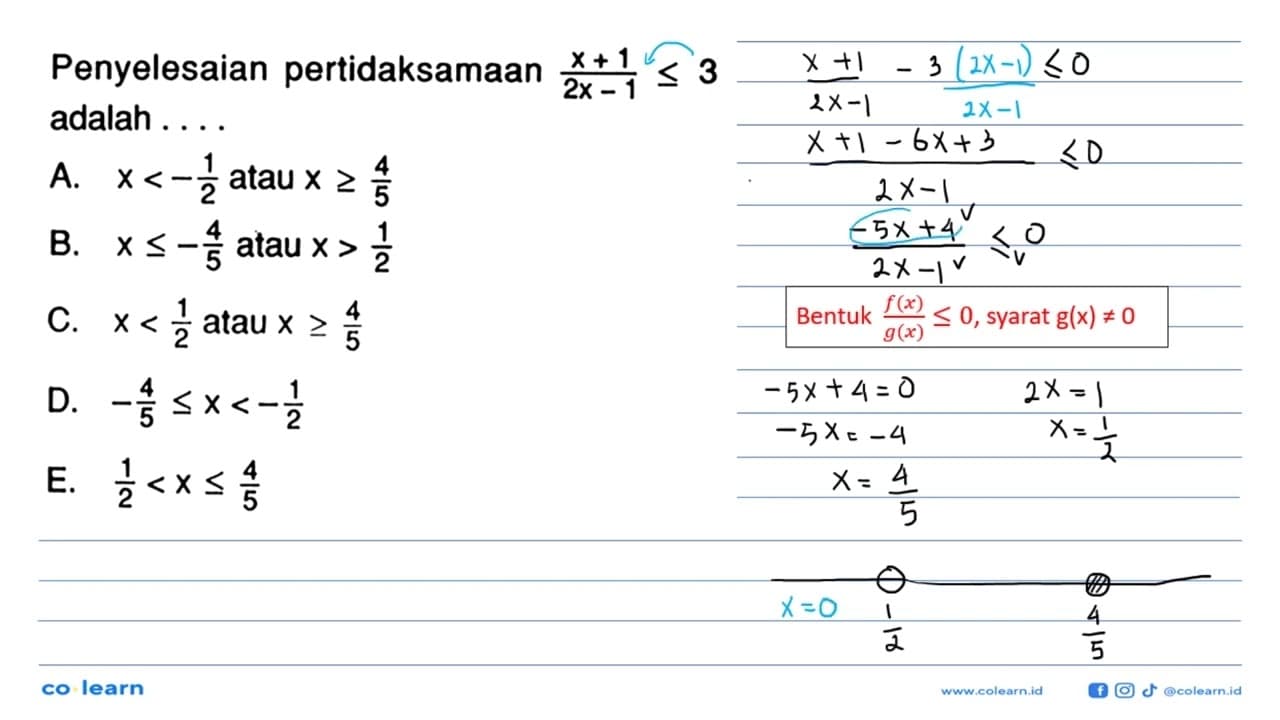 Penyelesaian pertidaksamaan (x + 1)/(2x – 1) ≤ 3
adalah . . . .
A. x < –1/2 atau x ≥ 4/5
B. x ≤ –4/5 atau x > 1/2
C. x < 1/2 atau x ≥ 4/5
D. –4/5 ≤ x < –1/2
E. 1/2 < x ≤ 4/5
(x + 1)/(2x – 1) – 3 (2x – 1)/(2x – 1) ≤ 0
(x + 1 – 6x + 3)/(2x – 1) ≤ 0
(–5x + 4)/(2x – 1) ≤ 0
Bentuk f(x)/g(x) ≤ 0, syarat g(x) ≠ 0
–5x + 4 = 0 2x = 1
–5x = –4 x = 1/2
x = 4/5
x = 0 1/2 4/5
co·learn
www.colearn.id @colearn.id